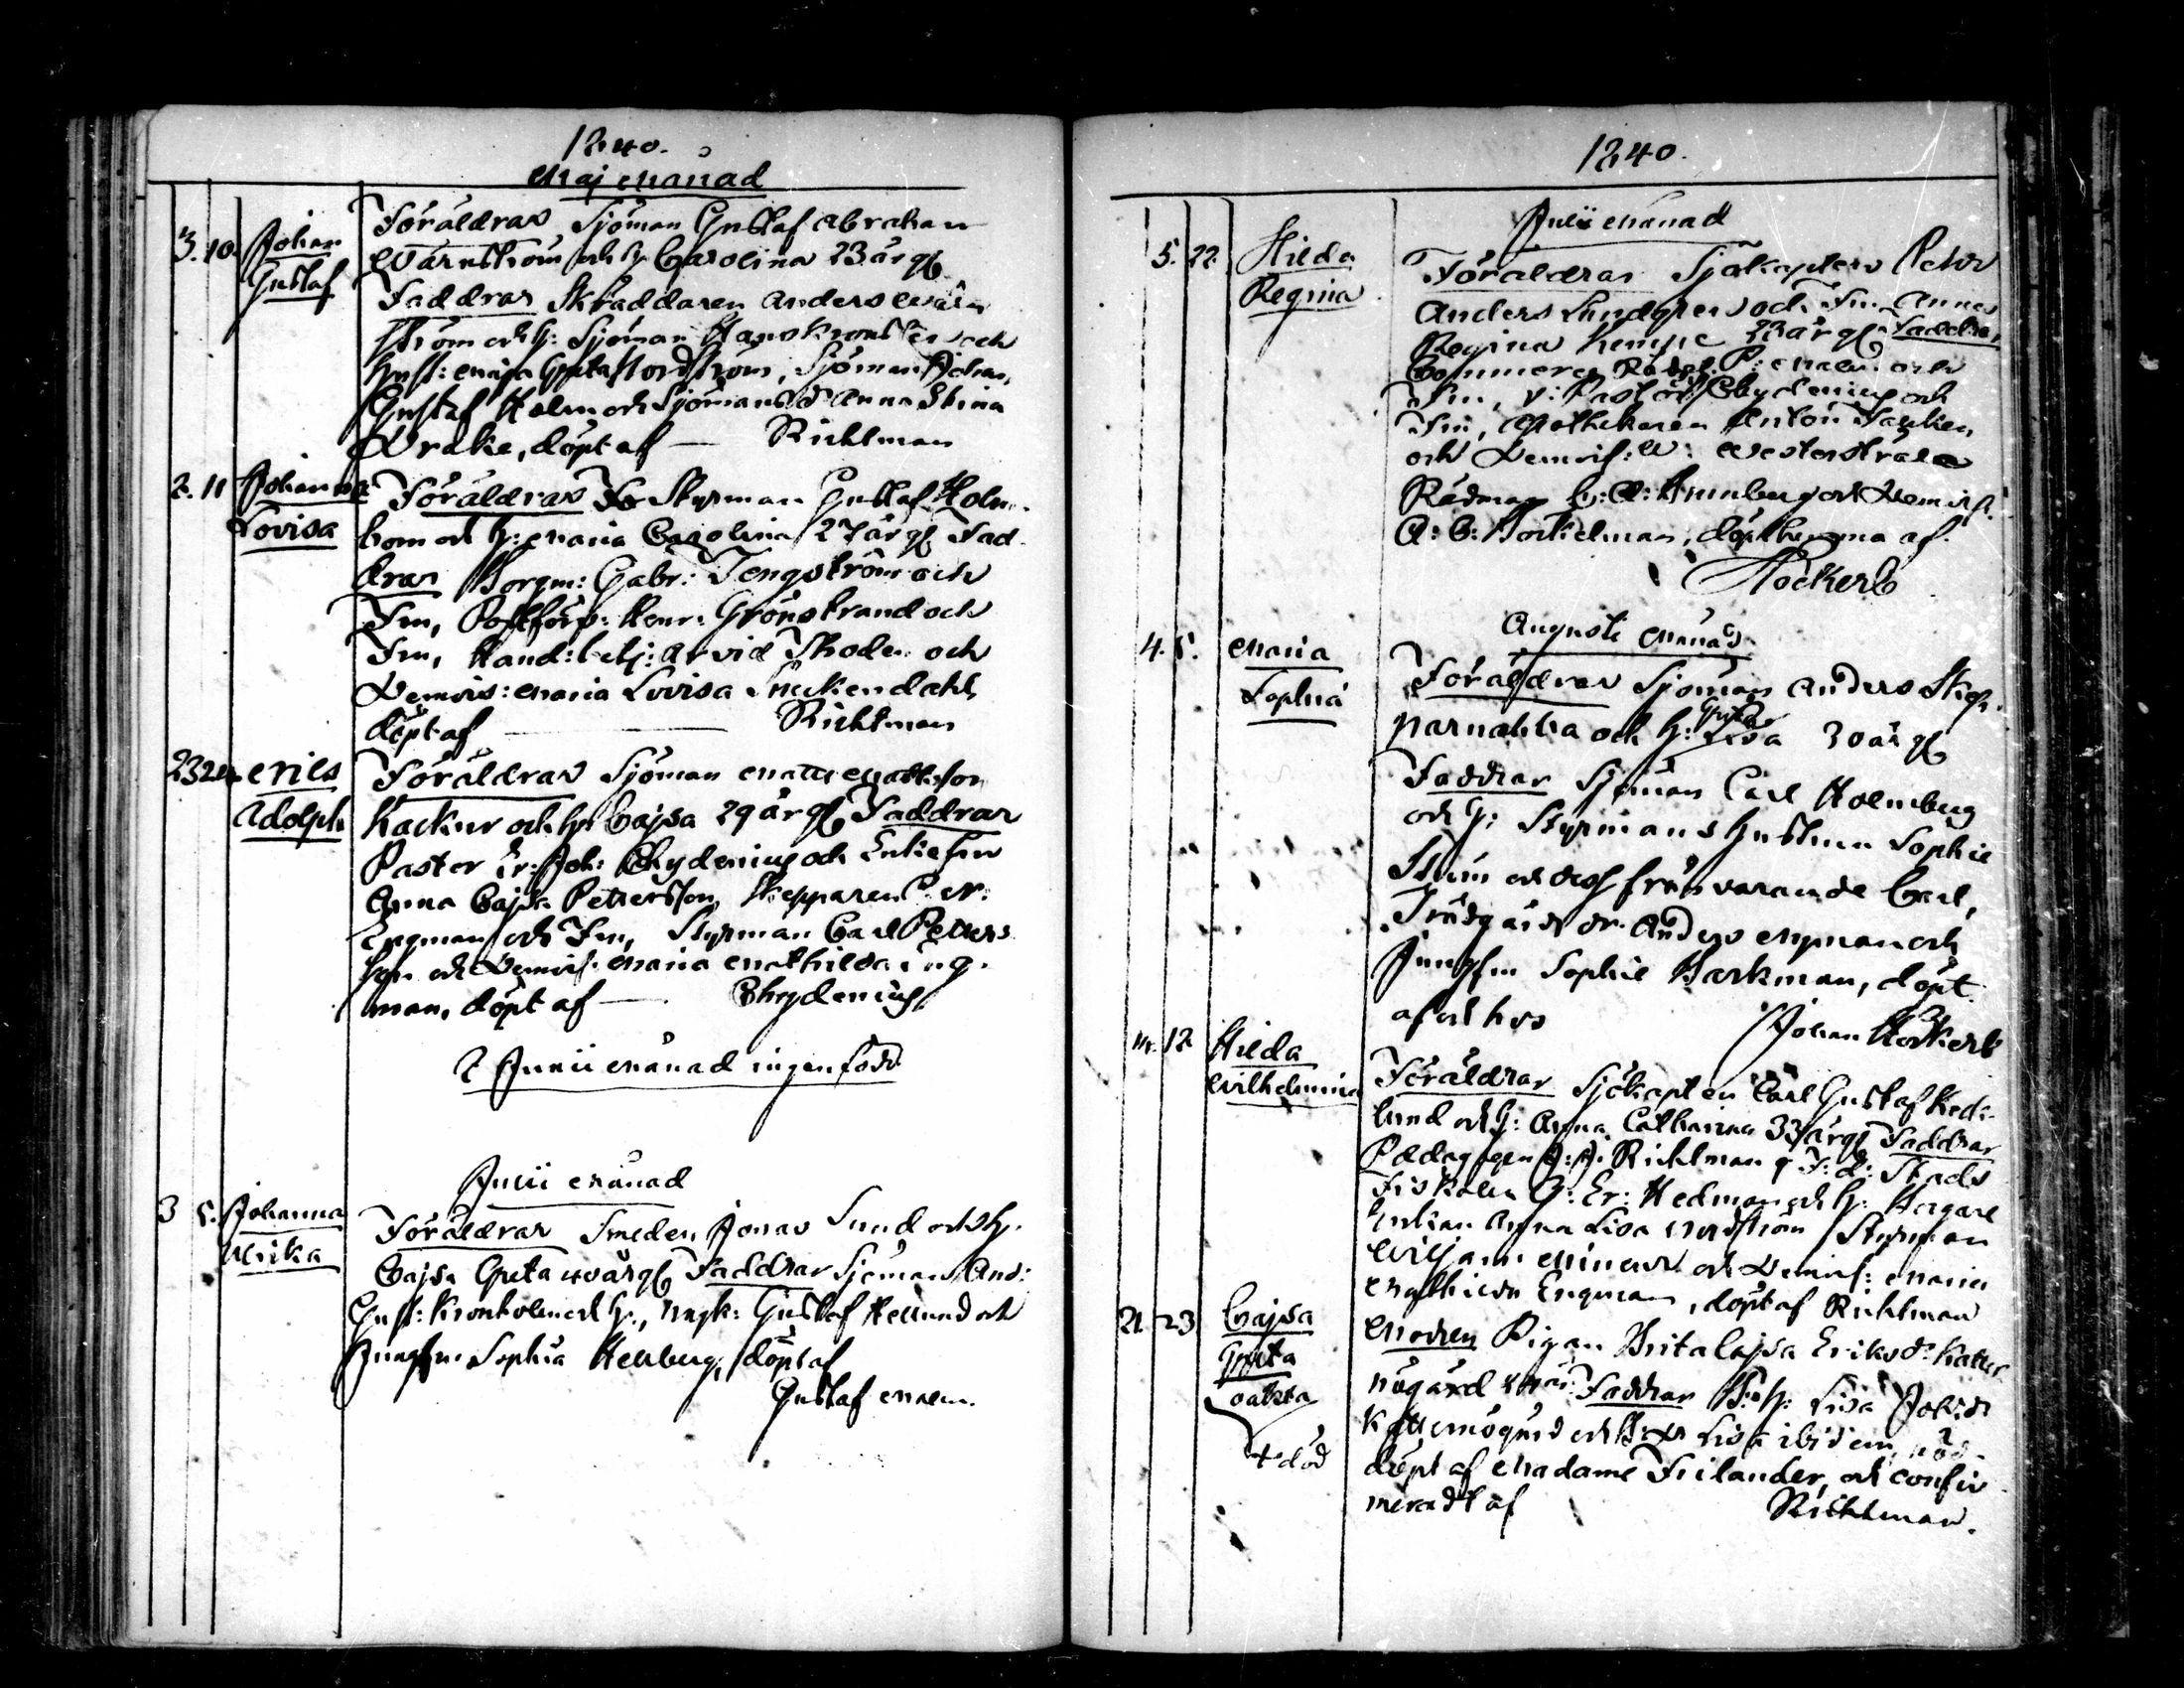 1840.
Maj Månad
3. 10. Johan Gustaf
Föräldrar Sjöman Gustaf Abraham
Wärnström och h: Carolina 23 år gl
Faddrar Skräddaren Anders Wärn
ström och h: Sjöman och
Hust: Maja Greta Nordström, Sjöman Johan
Gustaf Holm och Sjöman Anna Stina
Drake, döpt af — Richtman
2. 11 Johanna Lovisa
Föräldrar Styrman Gustaf Holm
bom och h: Maria Carolina 27 år gl Fad
drar Borgm: Gabr: Tengström och
Fru, Henr: Grönstrand och
Fru, Hand: betj: Arvid Thoden och
Demois: Maria Lovisa Sneckendahl,
döpt af — Richtman
23 24 Nils Adolph
Föräldrar Sjöman Matts Mattsson
Kackur och h: Cajsa 29 år gl Faddrar
Pastor Er: Joh: Chydenius och Enkefru
Anna Cajsa Pettersson, Skepparen
Engman och Fru, Styrman Carl Petters
son och Demois: Maria Mathilda Eng
man, döpt af — Chydenius
I Junii Månad ingen född
Julii Månad
3 5. Johanna Ulrika
Föräldrar Smeden Jonas Sund och h.
Cajsa Greta 40 år gl Faddrar Sjöman And:
Gust: Kronholm och h:, Ungk: Gustaf Hellund och
Jungfru Sophia Hellberg, döpt af
Gustaf Malm.
1840.
Julii Månad
5. 22. Hilda Regina
Föräldrar Sjökapten Petter
Anders Lundgren och Fru Anna
Regina Kempe 23 år gl Faddrar
Commerce Rådet P: Malm och
Fru, V: Pastor Chydenius och
Fru, Apothekaren Anton Fauken
och Demois: W: Westerstråle
Rådman och Demois:
A: C: döpt hemma af
Höckert
Augusti Månad
4. 5. Maria Sophia
Föräldrar Sjöman Anders Skep
parnabba och h: Greta Lisa 30 år gl
Faddrar Sjöman Carl Holmberg
och h: Styrmans hustrun Sophie
och dess frånvarande Carl,
Anders Nyman och
Jungfru Sophie Barkman, döpt
af och hos Johan Höckert
11. 12 Hilda Wilhelmina
Föräldrar Sjökapten Carl Gustaf Hed
lund och h: Anna Catharina 33 år gl Faddrar
Pædagogen J: A: Richtman, T: f: Stads
Fiskalen G: Er: Hedman och h: Hergare
Enkan Anna Lisa Nordström, Styrman
Wiljam och Demois: Maria
Mathilda Engman, döpt af Richtman
21 23 Cajsa Greta oäkta
+ död
Modren Pigan Brita Cajsa Eriksdr Katter
nögård Faddrar B: h: Lisa Johsdr
Katternögård och Lisa ibidem, nöd
döpt af Madame Frilander, och confir
meradt af Richtman.